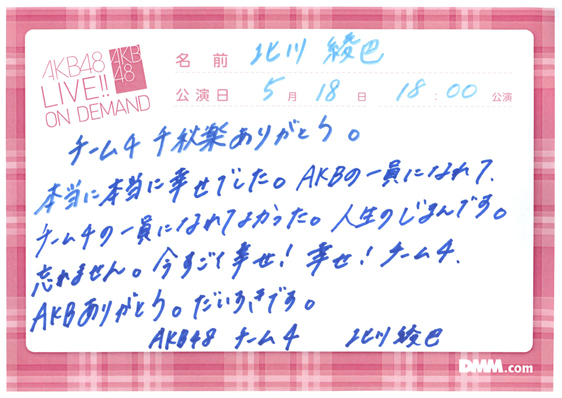 AKB48
LIVE!!
ON DEMAND
AKB
48
名前 北川 綾巴
公演日 5月18日 18:00公演
チーム4 千秋楽ありがとう。
本当に本当に幸せでした。AKBの一員になれて、
チーム4の一員になれてよかった。人生のじまんです。
忘れません。今すごく幸せ!幸せ!チーム4、
AKBありがとう。だいすきです。
AKB48 チーム4 北川綾巴
DMM.com